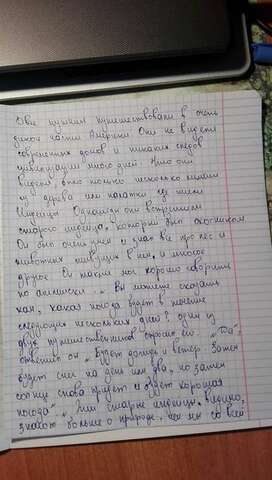 Два мужчин путешествовали в очень
дикой части Америки Они не видели
современных домов и никаких следов
цивилизации много дней Что они
видели, это только несколько хижин
из дерева или палатки где жили
Индейцы Однажды они встретили
старого индейца, который был охотником
Он был очень умен и знал все про лес и
животных живущих в нем, и многое
другое. Он также мог хорошо говорить
по английски "Вы можете сказать
нам, какая погода будет в течение
следующих нескольких дней? один из
двух путешественников спросил его. "Да",
ответил он "Будет дождь и ветер. Затем
будет снег на день или два, но затем
солнце снова придет и будет хорошая
погода". "Эти старые индейцы, видимо,
знают больше о природе, чем мы со всей